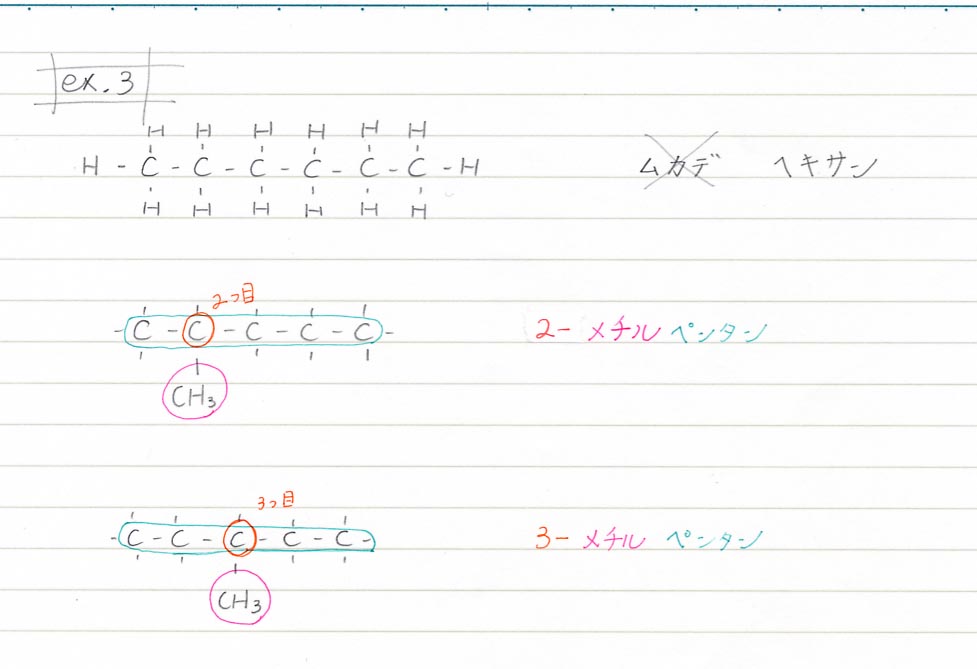 ex.3
H H H H H H
H - C - C - C - C - C - C - H ムカデ ヘキサン
H H H H H H
2つ目
- C - C - C - C - C - 2-メチルペンタン
CH3
3つ目
- C - C - C - C - C - 3-メチルペンタン
CH3